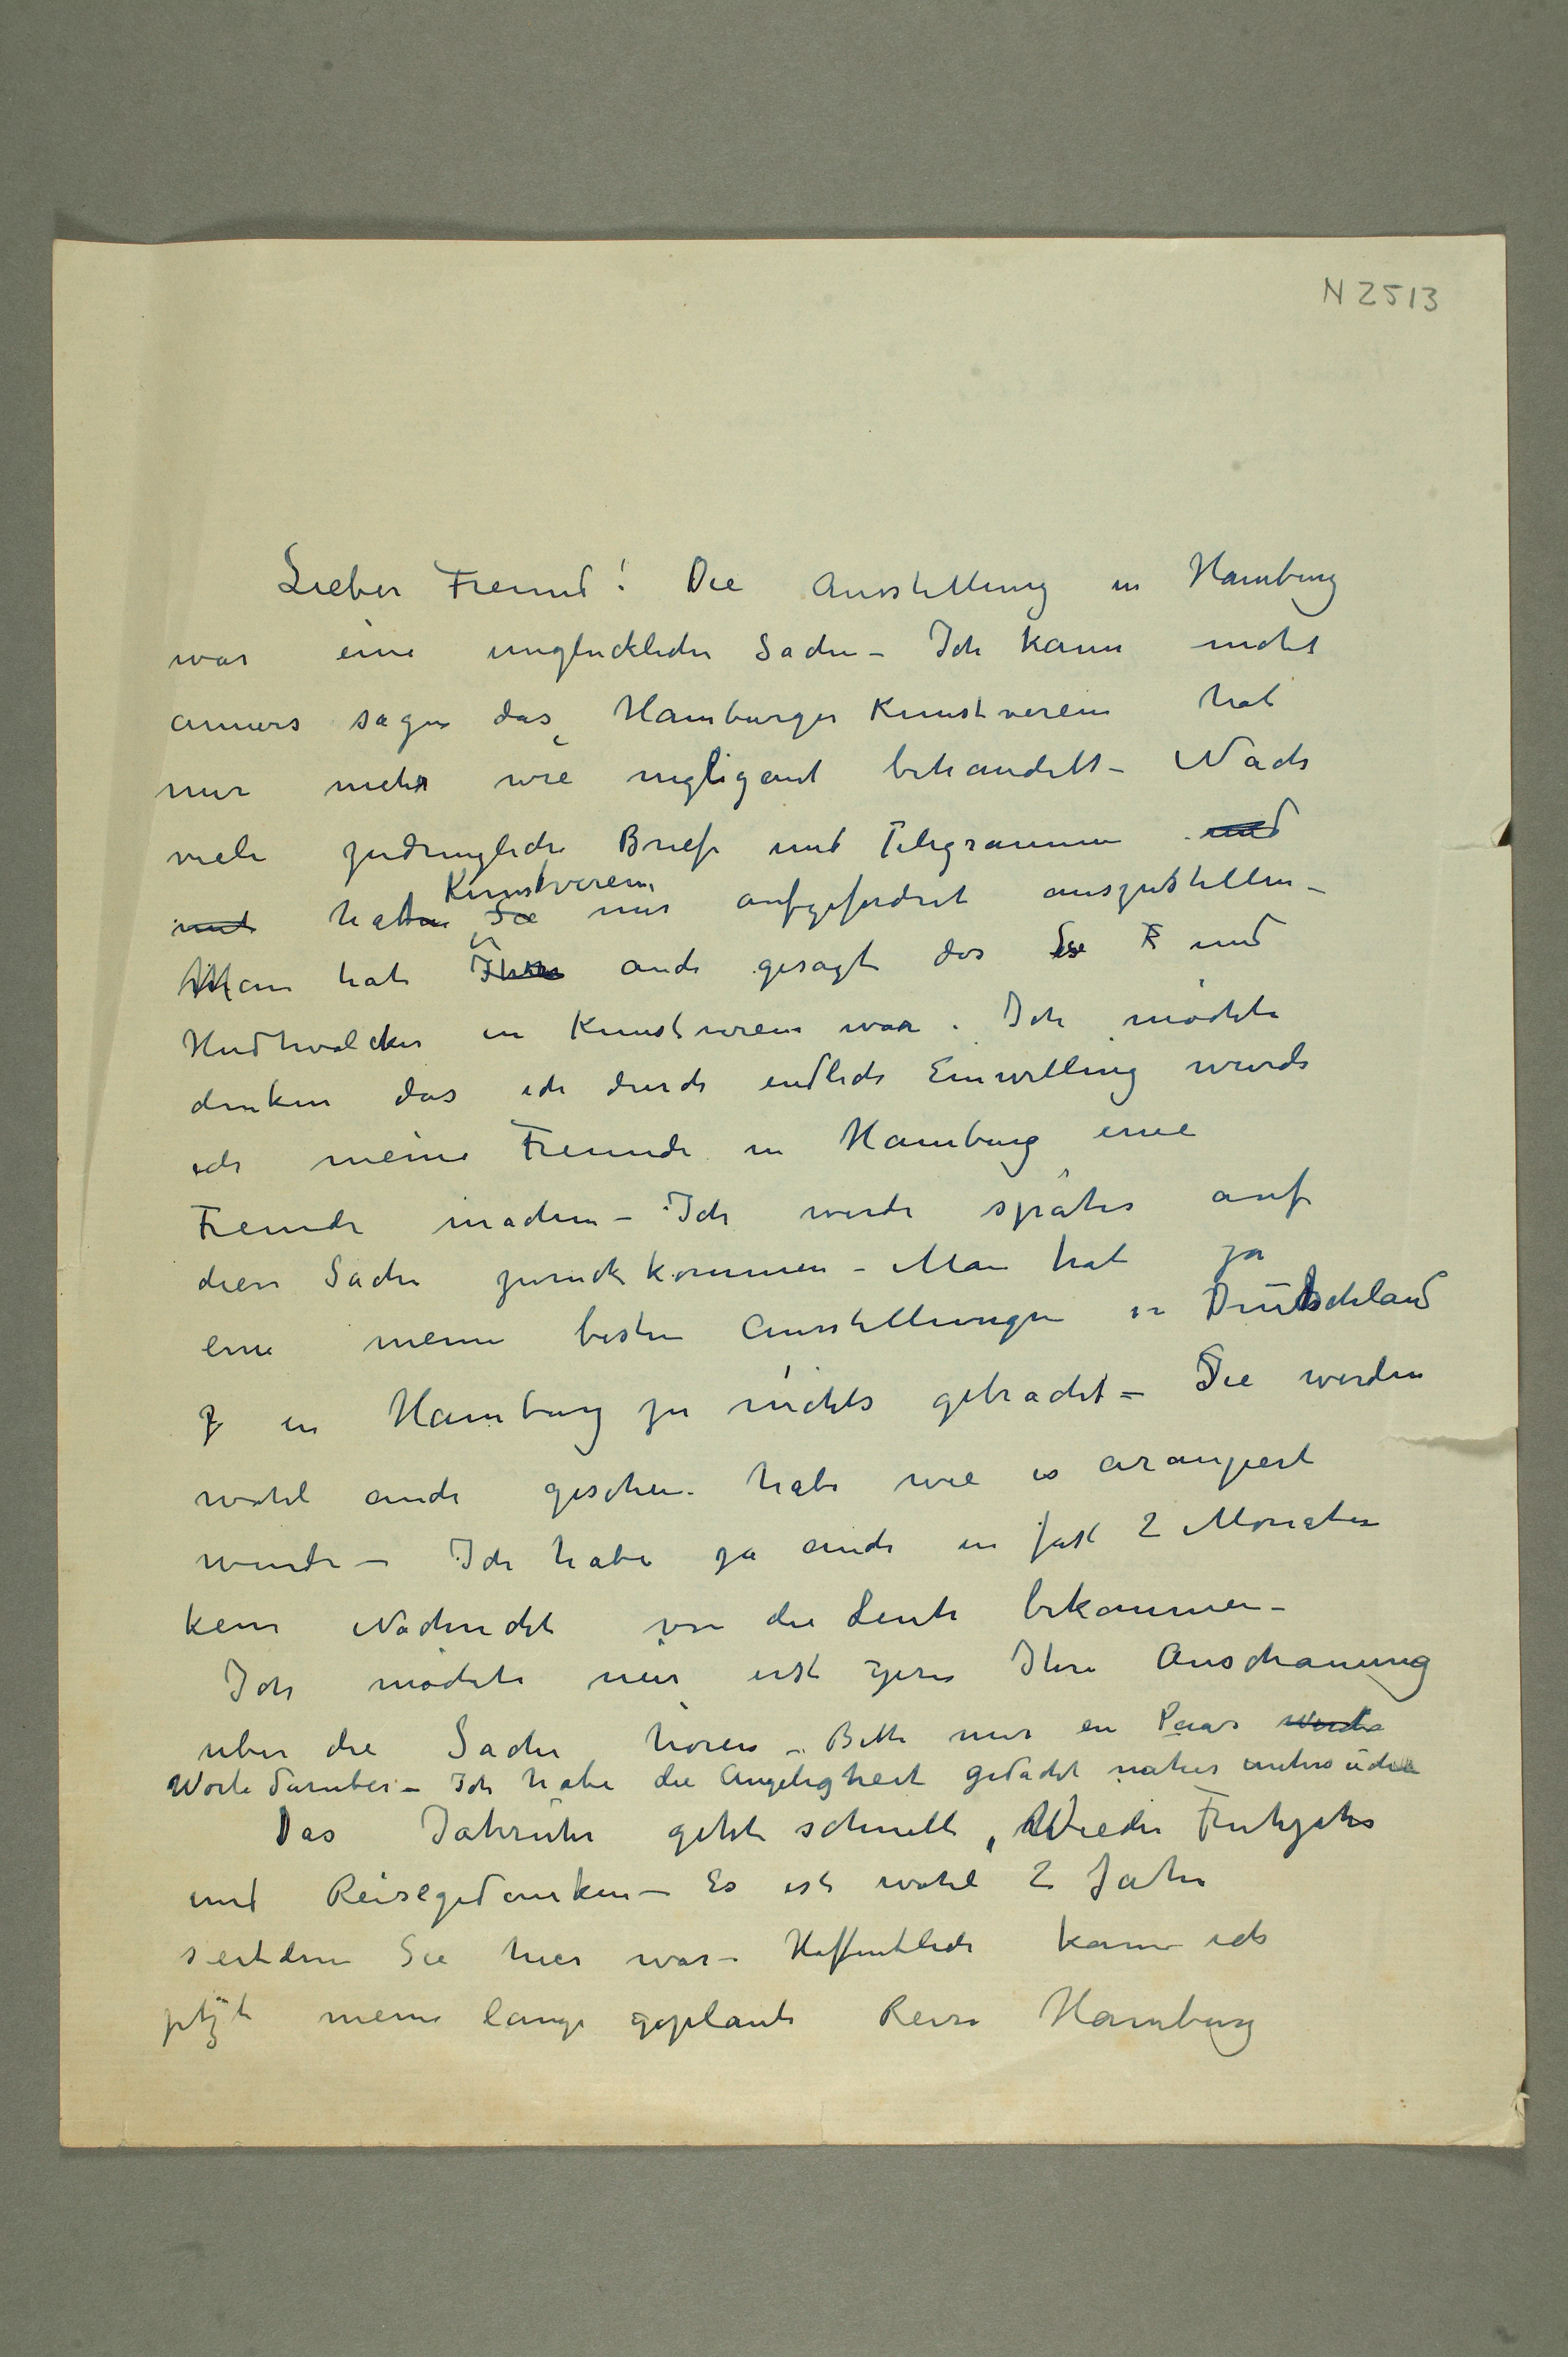 N 2513
Lieber Freund! Die Ausstellung in Hamburg
war eine unglückliche Sache – Ich kann nicht
anners sagen das Hamburger Kunstverein hat
mir mehr wie negligant behandelt – Nach
viele zudringliche Briefe und Telegramme und
mit hatten Sie Kunstverein mir aufgefordret auszustellen –
Man hat auch gesagt das Sie und
Hudtwalcker in Kunstverein war. Ich möchte
denken das ich durch endlich Einwilling wurde
ich meine Freunde in Hamburg eine
Freude machen – Ich werde später auf
diese Sache zurückkommen – Man hat ja
eine meine besten Ausstellungen in Deutschland
in Hamburg zu nichts gebracht – Sie werden
wohl auch gesehen habe wie es arangiert
wurde – Ich habe ja auch in fast 2 Monaten
kein Nachricht von die Leute bekommen –
Ich möchte nur erst gern Ihre Anschauung
uber die Sache hören – Bitte nur en Paar Worte
Worte daruber – Ich habe die Angeligheit gedacht näher untersuchen
Das Jahruhr geht schnell, Wieder Fruhjahr
und Reisegedanken – Es ist wohl 2 Jahre
seitdem Sie hier war – Hoffentlich kann ich
jetzt meine lange geplante Reise Hamburg